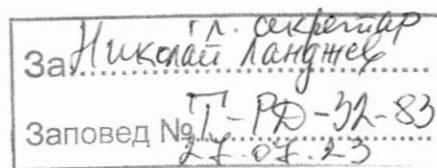 гл. секретар
За Николай Ланджев
Заповед № Т-РД-32-83
27.07.23